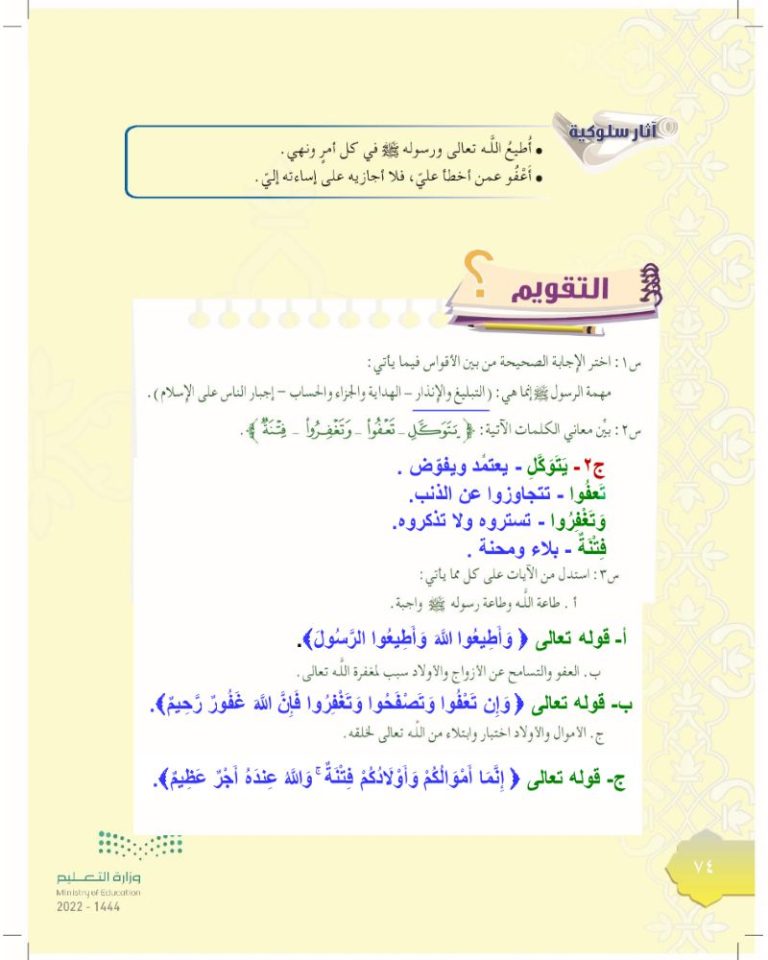 آثار سلوكية
• أُطيعُ اللَّه تعالى ورسوله ﷺ في كل أمرٍ ونهي.
• أَعْفُو عمن أخطأ عليّ، فلا أجازيه على إساءته إليّ.
التقويم
؟
س١: اختر الإجابة الصحيحة من بين الأقواس فيما يأتي:
مهمة الرسول ﷺ إنما هي: (التبليغ والإنذار – الهداية والجزاء والحساب – إجبار الناس على الإسلام).
س٢: بيِّن معاني الكلمات الآتية: ﴿ يَتَوَكَّلِ - تَعْفُواْ - وَتَغْفِرُواْ - فِتْنَةٌ ﴾.
ج٢- يَتَوَكَّلِ - يعتمد ويفوّض .
تَعفُوا - تتجاوزوا عن الذنب.
وَتَغْفِرُوا - تستروه ولا تذكروه.
فِتْنَةٌ - بلاء ومحنة .
س٣: استدل من الآيات على كل مما يأتي:
أ . طاعة اللَّه وطاعة رسوله ﷺ واجبة.
أ- قوله تعالى ﴿ وَأَطِيعُوا اللَّهَ وَأَطِيعُوا الرَّسُولَ﴾.
ب. العفو والتسامح عن الأزواج والأولاد سبب لمغفرة اللَّه تعالى.
ب- قوله تعالى ﴿وَإِن تَعْفُوا وَتَصْفَحُوا وَتَغْفِرُوا فَإِنَّ اللَّهَ غَفُورٌ رَّحِيمٌ﴾.
ج. الأموال والأولاد اختبار وابتلاء من اللَّه تعالى لخلقه.
ج- قوله تعالى ﴿ إِنَّمَا أَمْوَالُكُمْ وَأَوْلَادُكُمْ فِتْنَةٌ ۚ وَاللَّهُ عِندَهُ أَجْرٌ عَظِيمٌ﴾.
٧٤
وزارة التعليم
Ministry of Education
2022 - 1444